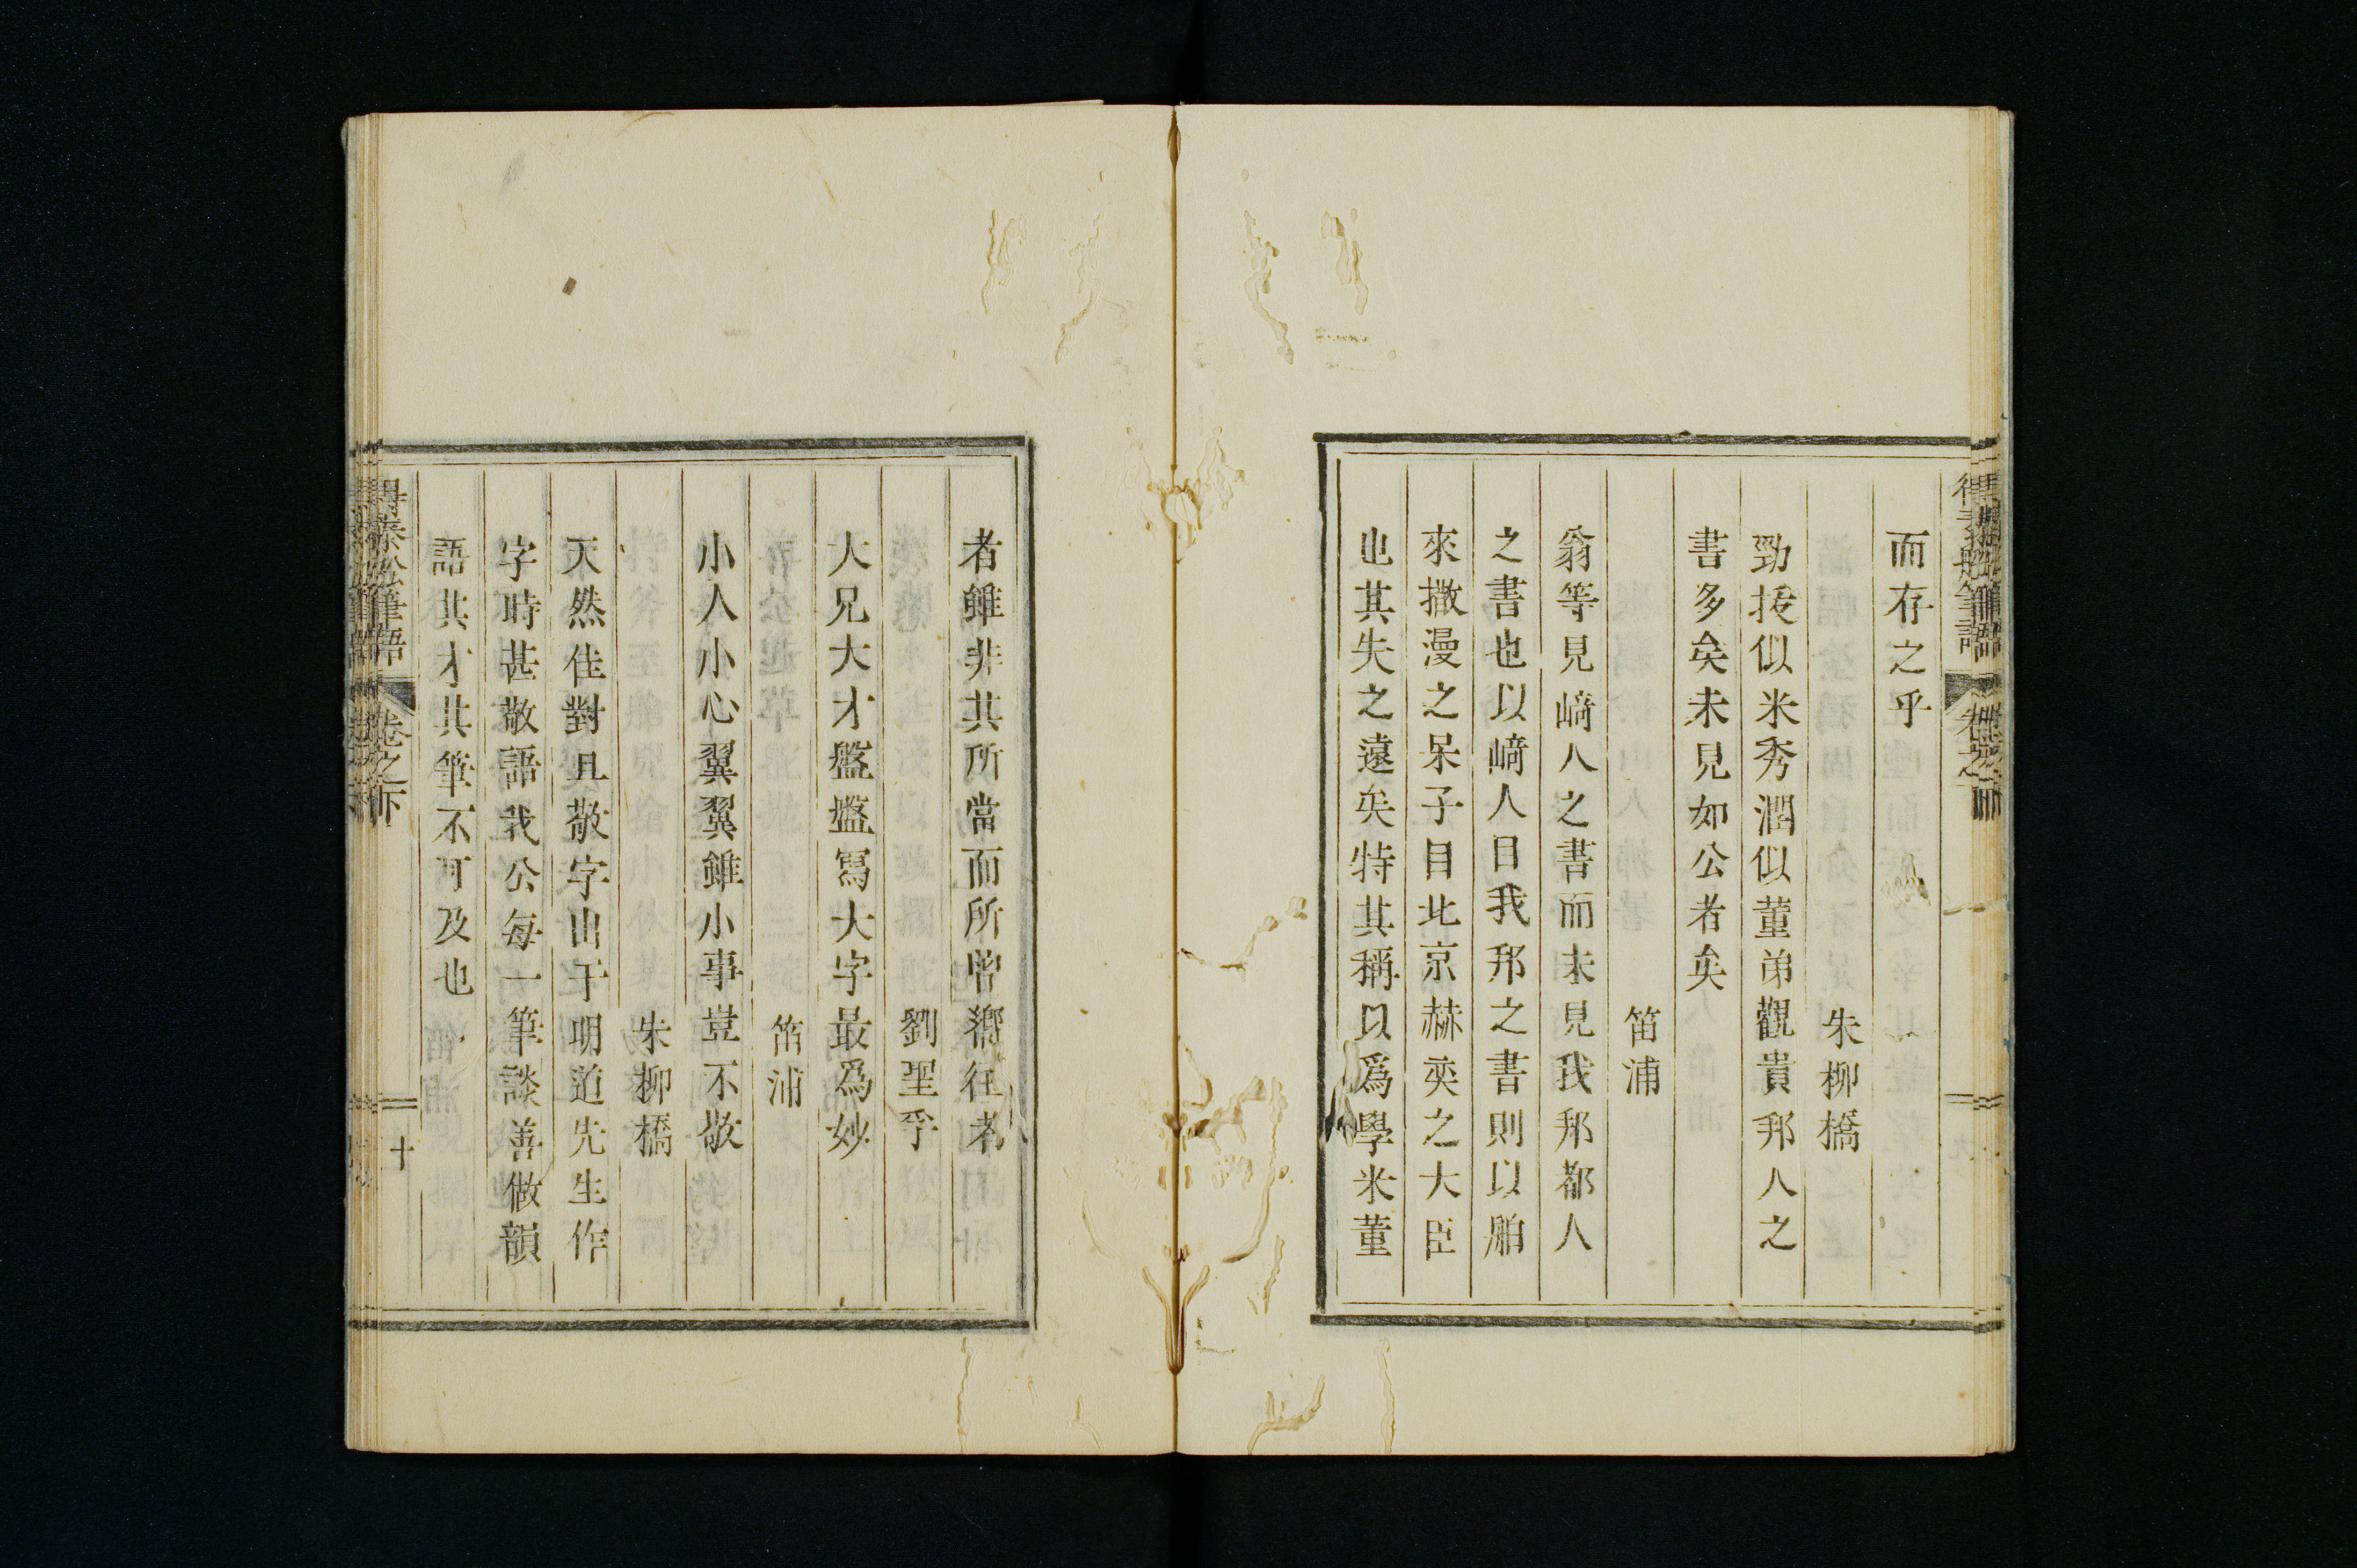 而存之乎
朱柳橋
勁拔似米秀潤似董弟觀貴邦人之
書多矣未見如公者矣
笛浦
翁等見﨑人之書而未見我邦都人
之書也以﨑人目我邦之書則以舶
來撒漫之呆子目北京赫奕之大臣
也其失之遠矣特其稱以爲學米董
者雖非其所當而所曾嚮往者
劉聖孚
大兄大才盤盤寫大字最爲妙
笛浦
小人小心翼翼雖小事豈不敬
朱柳橋
天然佳對且敬字出于明道先生作
字時甚敬語我公每一筆談善做韻
語其才其筆不可及也
得泰船筆語
卷之下
十